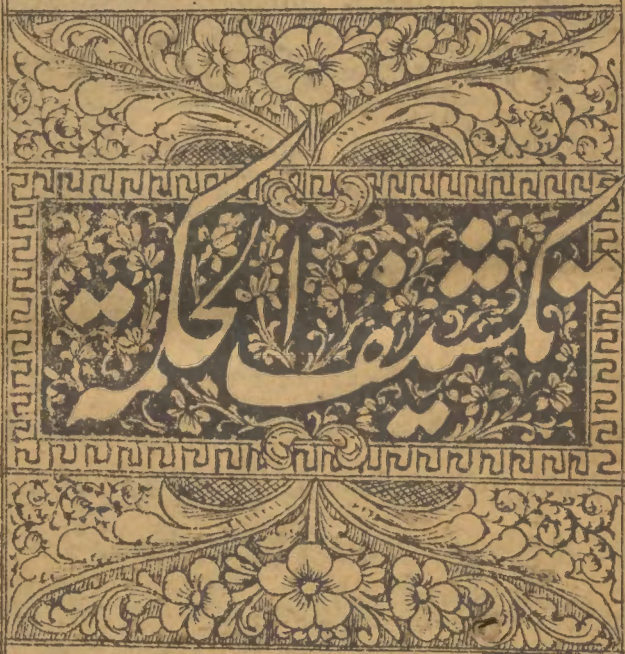 تكشيف الحكمة